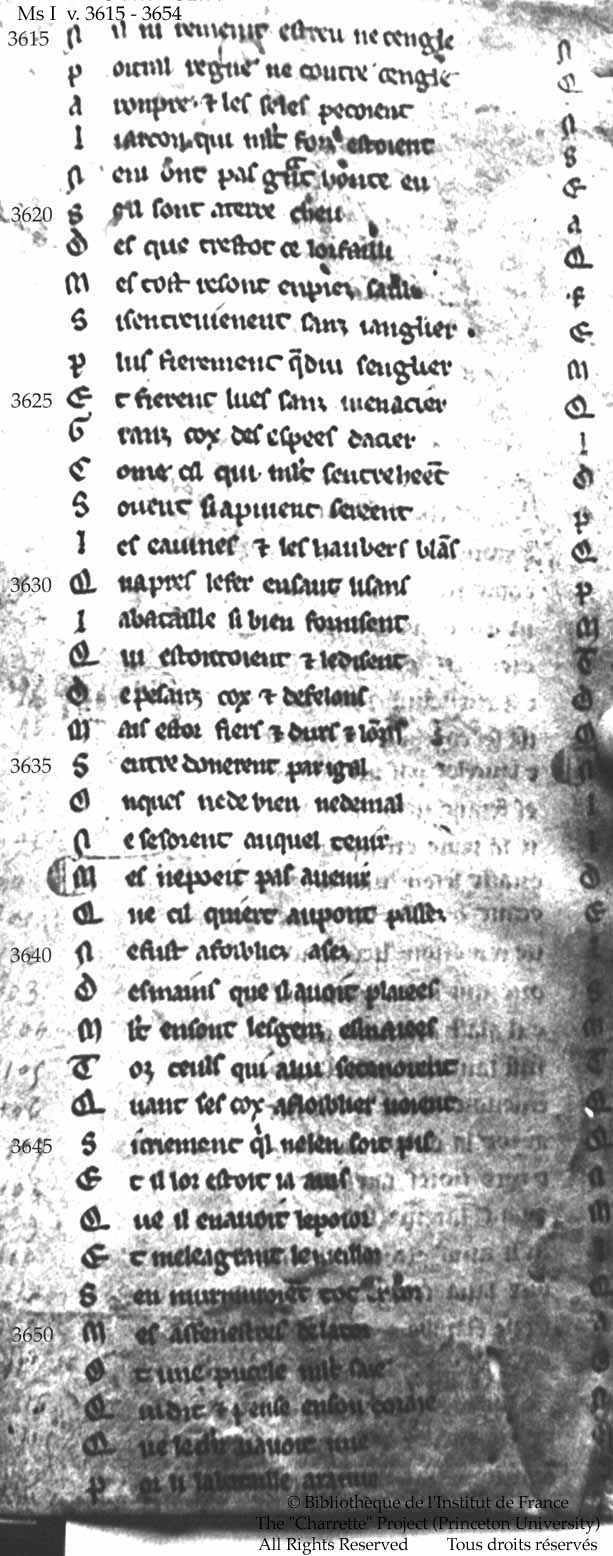 Ms I v. 3615 - 3654
3615 N il ni remenit estreu ne cengle
P oitral regne ne contre cengle
A ronpre ⁊ les seles pecoient
L iarcon qui mlt fors estoient
N en ōnt pas honte eu
3620 S il sont aterre cheu
D es que trestot ce lor failli
M es tost resont enpiez sailli
S isentreuienent sanz ianglier
P lus fierement q̄ dui senglier
3625 E t fierent lues sanz menacier
G ranz cox des espees dacier
C ome cil qui mlt sentreheēt
S ouent si apment serēent
L es cauines ⁊ les haubers blās
3630 Q uapres lefer ensaut lisans
L abataille si bien fornisent
Q ui estoutoient ⁊ ledisent
D e pesanz cox ⁊ defelons
M ais estor fiers ⁊ durs ⁊ lōns
3635 S entre donerent par igal
O nques nede bien nedemal
N e sesorent auquel tenir
M es nepoeit pas auenir
Q ue cil quiert aupont passez
3640 N efust afoibliez asez
D esmains que il auoit plaiees
M lt ensont lesgenz esmaiees
T oz ceuls qui alui setenoient
Q uant ses cox afloiblier uoient
3645 S icriement q̄l nelen soit pis
E t il lor estoit ia auis
Q ue il enauoit lepoior
E t meleagrant lemeillor
S en murmuroiēt tot
3650 M es asfenestres delator
O t une pucele mlt saie
Q ui dit ⁊ pense enson coraie
Q ue auoit mie
P or li labataille
© Bibliothèque de l'Institut de France
The "Charrette" Project (Princeton University)
All Rights Reserved Tous droits réservés